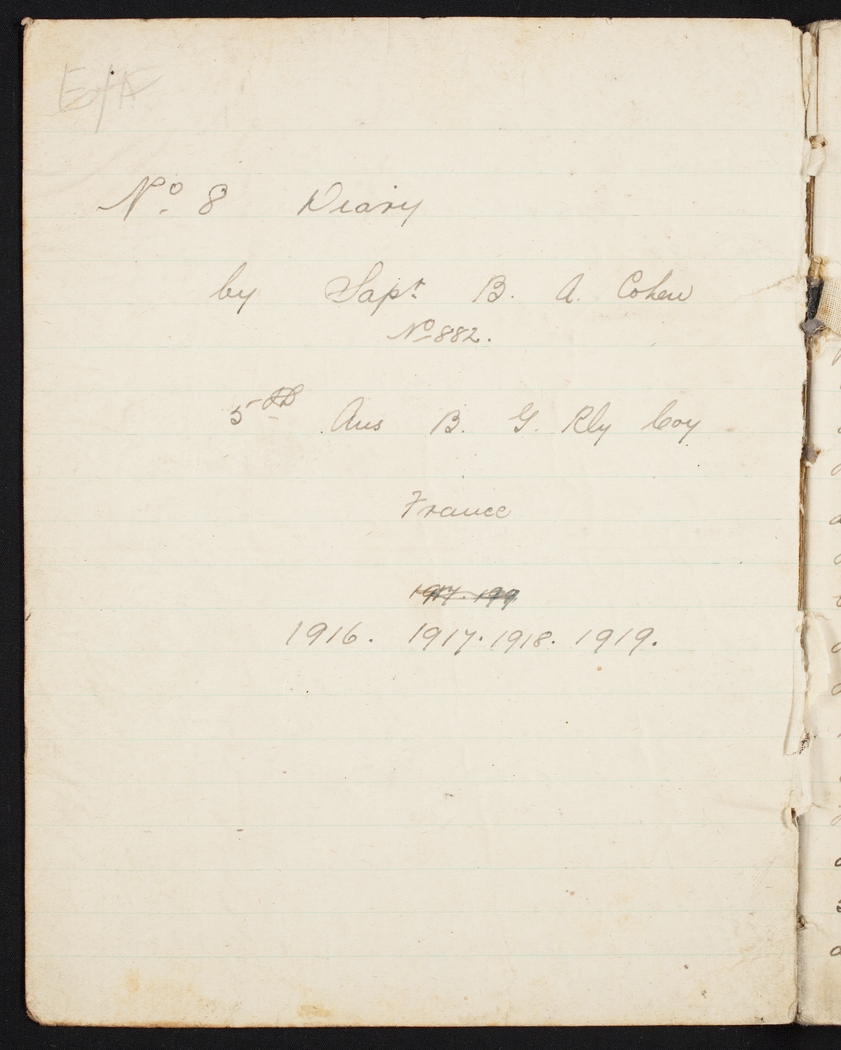 No. 8 Diary
by Sapr. B. A. Cohen
No 882.
5th Aus B. G. Rly Coy
France
1916. 1917. 1918. 1919.